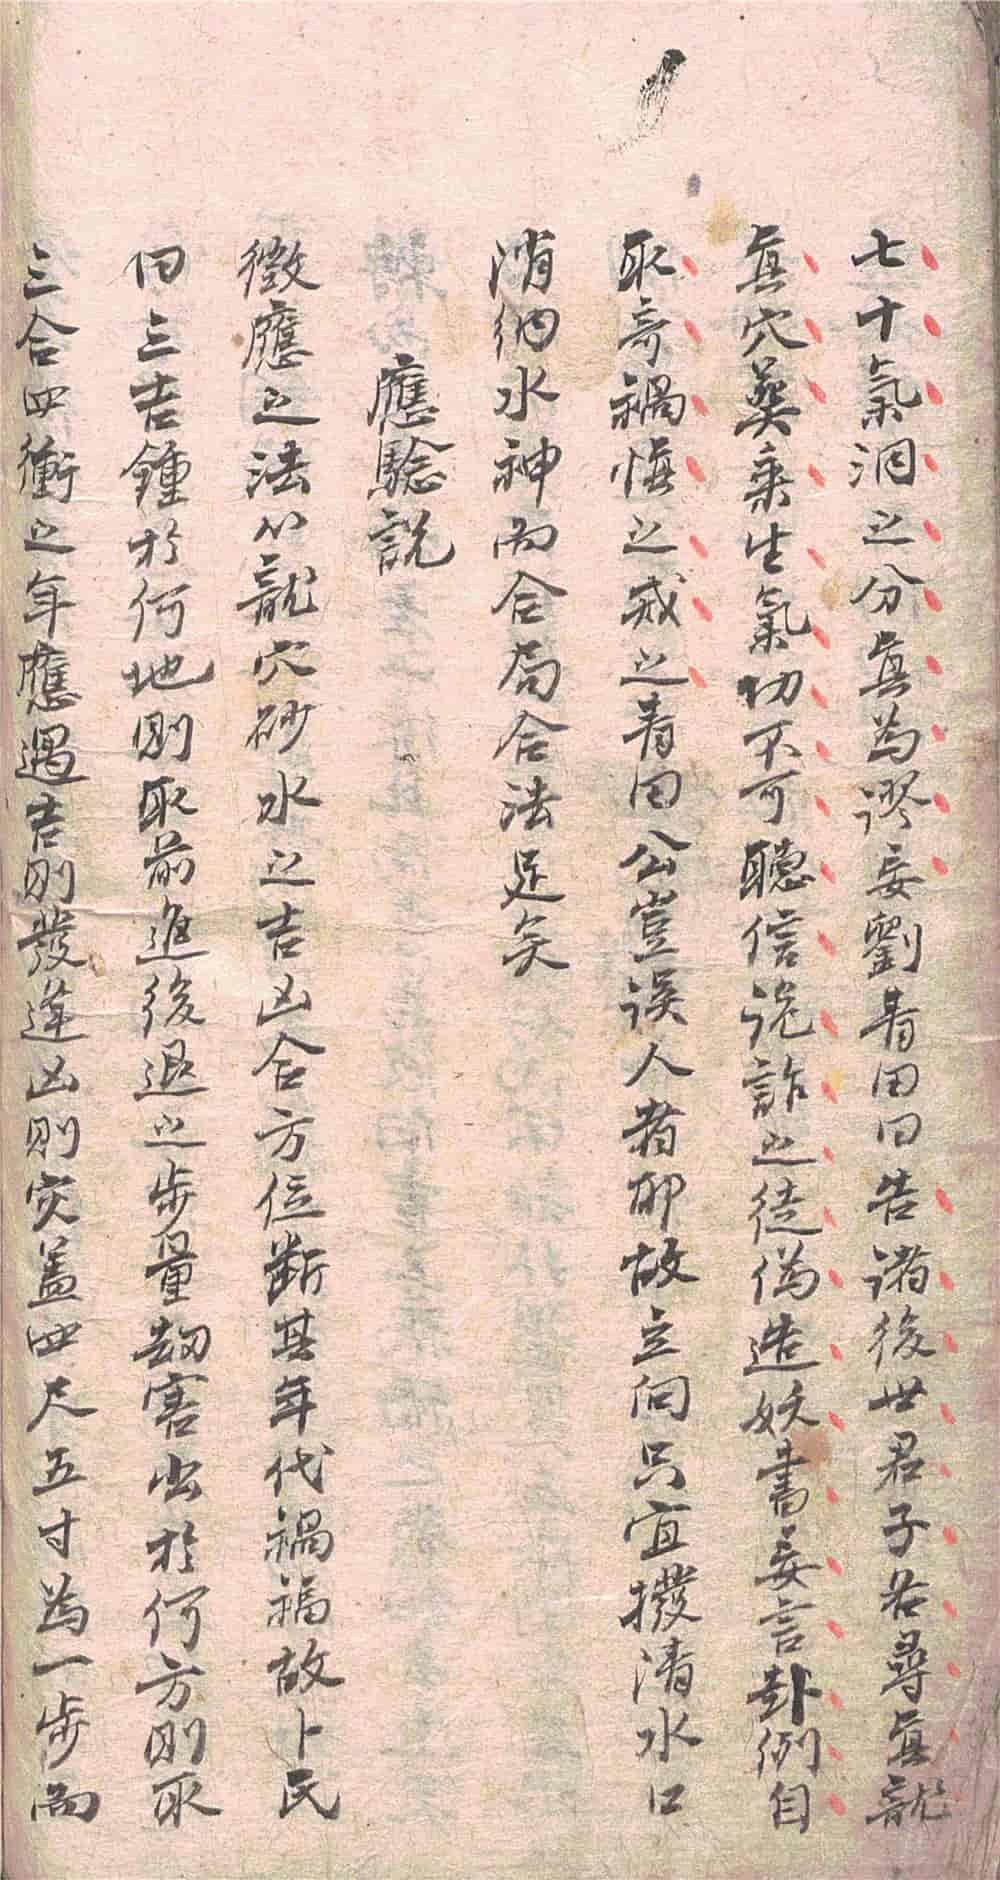 七十氣洞之分真為謬妄劉青田曰告誦後世君子若尋真龍
真穴葬乘生氣切不可聽信詭詐之徒偽造妖書妄言卦例自
取奇禍悔之戒之青田公豈误人者耶故立向只宜撥清水口
消納水神而合局合法足矣
應驗説
徵應之法以龍穴砂水之吉凶合方位断其年代禍福故卜氏
曰三吉鍾於何地則取前進後退之步量劫害出於何方則取
三合四衝之年應遇吉則發逢凶則灾盖四尺五寸為一步而